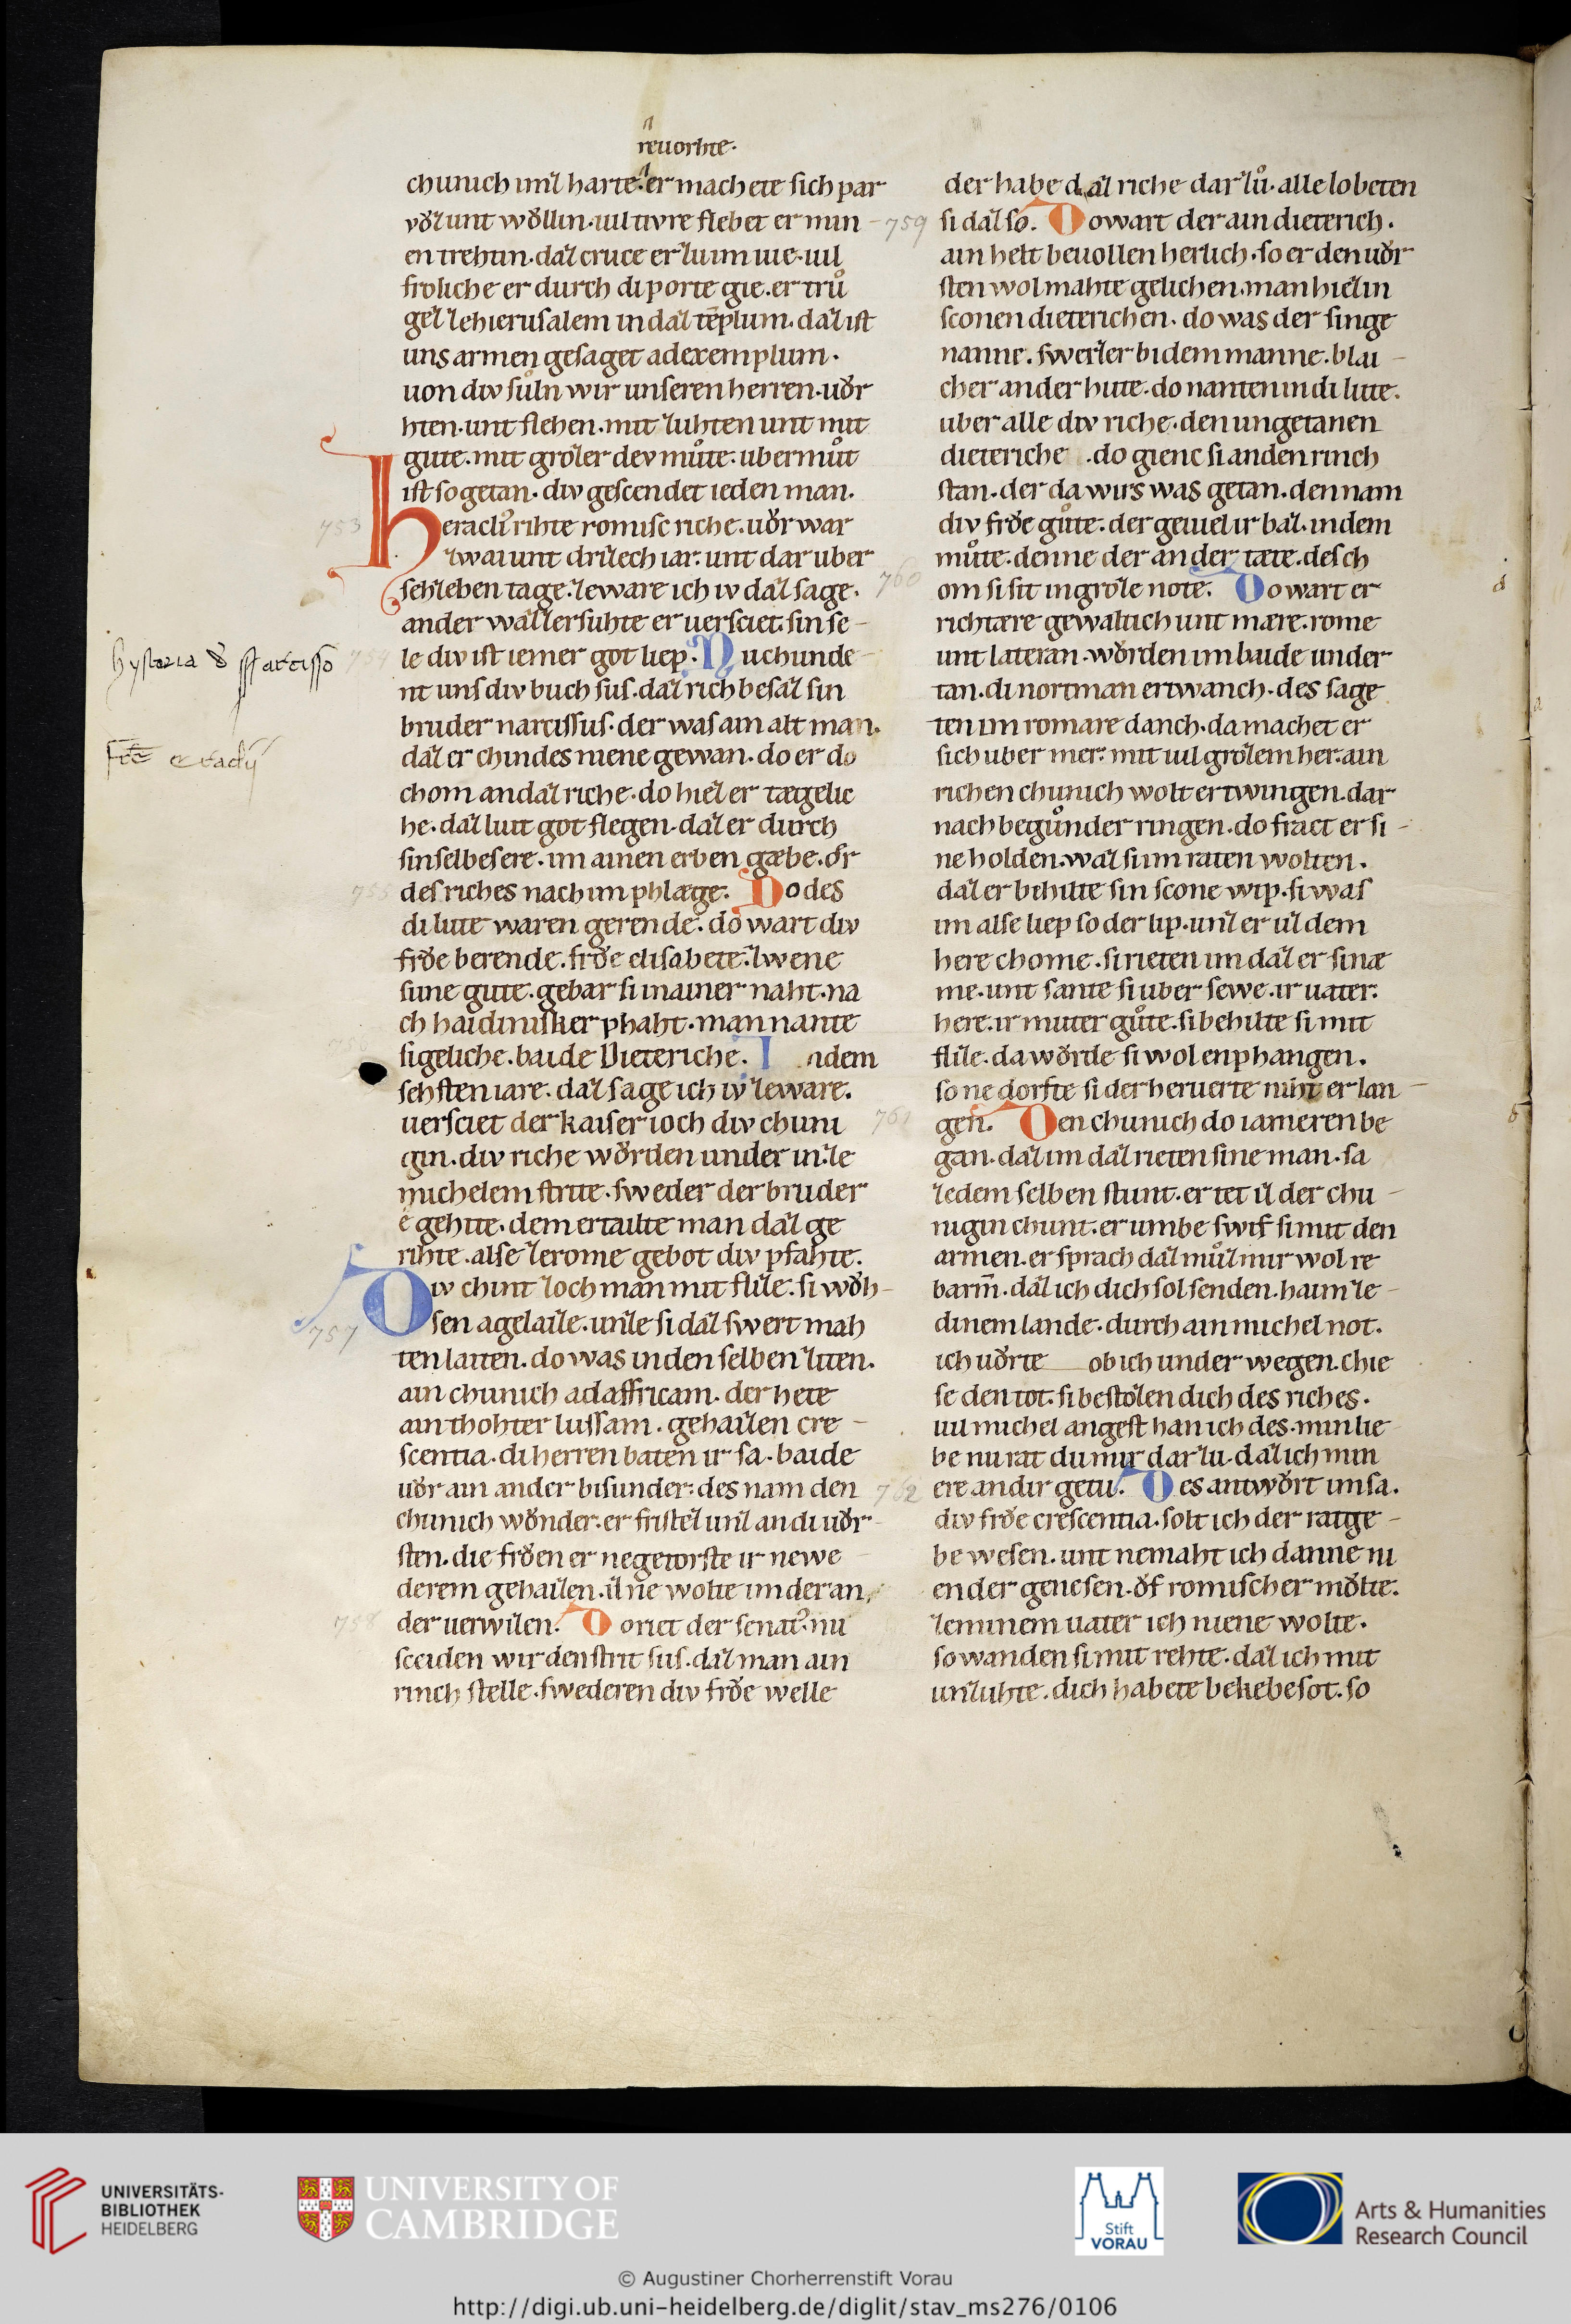 revorhte.
chunich imz harte. er machete sich par
vᷤz unt wͦllin. uil tivre flehet er min
en trehtin. daz cruce er zuim nie. uil
froliche er durch di porte gie. er trůͦ
gez zehierusalem in daz tēplum. daz ist
uns armen gesaget ad exemplum.
uon div suͦln wir unseren herren. uͦr
hten. unt flehen. mit zuhten unt mit
gute. mit grozer dev muͦte. ubermuͦt
ist so getan. div gescendet ieden man.
Heracliꝰ rihte romisc riche. uͦr war
zwai unt drizech iar. unt dar uber
sehzehen tage. zeware ich iv daz sage.
an der wazzersuhte er uersciet. sin se
le div ist iemer got liep. Nu chunde
nt uns div buch sus. daz rich besaz sin
bruder narcissus. der was ain alt man.
daz er chindes niene gewan. do er do
chom an daz riche. do hiez er tægelic
he. daz liut got flegen. daz er durch
sin selbes ere. im ainen erben gæbe. dͦr
des riches nach im phlæge. Do des
di lute waren gerende. do wart div
frͦe berende. frͦe elisabete. zwene
sune gute. gebar si in ainer naht. na
ch haidinisker phaht. man nante
si geliche. baide Dieteriche. In dem
sehsten iare. daz sage ich iv zeware.
uersciet der kaiser ioch div chuni
gin. div riche wͦrden under in. ze
michelem strite. sweder der bruder
e gehite. dem ertailte man daz ge
rihte. alse ze rome gebot div pfahte.
Div chint zoch man mit flize. si wͦh
sen agelaize. unze si daz swert mah
ten laiten. do was in den selben ziten.
ain chunich ad affricam. der hete
ain thohter lussam. gehaizen cre
scentia. di herren baten ir sa. baide
uͦr ain ander bisunder. des nam den
chunich wͦnder. er fristez unz an di uͦr
sten. die frͦen er negetorste ir newe
derem gehaizen. iz ne wolte im der an
der uerwizen. Do riet der senatꝰ. nu
sceiden wir den strit sus. daz man ain
rinch stelle. swederen div frͦe welle
der habe daz riche dar zuͦ. alle lobeten
si daz so. Do wart der ain dieterich.
ain helt beuollen herlich. so er den uͦr
sten wol mahte gelichen. man hiez in
sconen dieterichen. do was der sin ge
nanne. swerzer bi dem manne. blai
cher an der hute. do nanten in di lute.
uber alle div riche. den ungetanen
dieteriche. do gienc si an den rinch
stan. der da wirs was getan. den nam
div frͦe guͦte. der geuiel ir baz. in dem
muͦte. denne der ander tæte. des ch
om si sit in groze note. Do wart er
richtære gewaltich unt mære. rome
unt lateran. wͦrden im baide under
tan. di nortman er twanch. des sage
ten im romare danch. da machet er
sich uber mer. mit uil grozem her. ain
richen chunich wolt er twingen. dar
nach begunder ringen. do fraet er si
ne holden. waz si im raten wolten.
daz er behilte sin scone wip. si was
im alse liep so der lip. unz er uz dem
here chome. si rieten im daz er si næ
me. unt sante si uber sewe. ir uater.
here. ir muter guͦte. si behilte si mit
flize. da wͦrde si wol enphangen.
so ne dorfte si der heruerte niht erlan
gen. Den chunich do iameren be
gan. daz im daz rieten sine man. sa
ze dem selben stunt. er tet iz der chu
nigin chunt. er umbe swif si mit den
armen. er sprach daz muͦz mir wol re
barm̄. daz ich dich sol senden. haim ze
dinem lande. durch ain michel not.
ich uͦrte ob ich under wegen. chie
se den tot. si bestozen dich des riches.
uil michel angest han ich des. min lie
be nu rat du mir dar zu. daz ich min
ere an dir getu. Des antwͦrt im sa.
div frͦe crescentia. solt ich der ratge
be wesen. unt ne maht ich danne ni
ender genesen. ͦf romischer mͦlte.
ze minem uater ich niene wolte.
so wanden si mit rehte. daz ich mit
unzuhte. dich habete bekebesot. so
753
754
755
756
757
758
759
760
761
762
UNIVERSITÄTS-
BIBLIOTHEK
HEIDELBERG
UNIVERSITY OF
CAMBRIDGE
Stift
VORAU
Arts & Humanities
Research Council
© Augustiner Chorherrenstift Vorau
http://digi.ub.uni-heidelberg.de/diglit/stav_ms276/0106